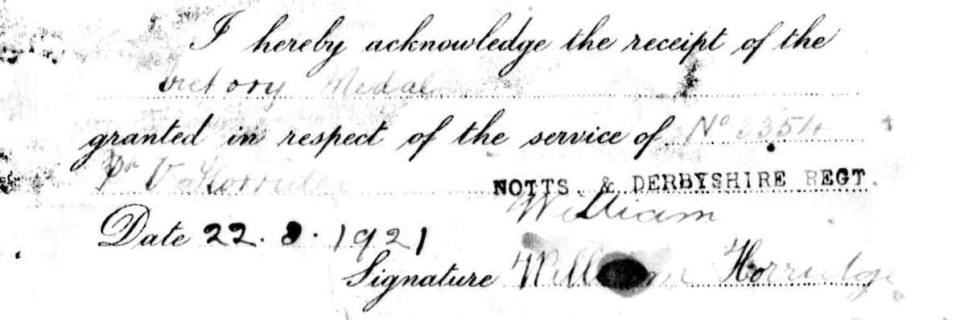 I hereby acknowledge the receipt of the
Victory Medal
granted in respect of the service of Nº 3354
Pr V Horridge NOTTS. & DERBYSHIRE REGT.
William
Date 22. 8. 1921
Signature William Horridge